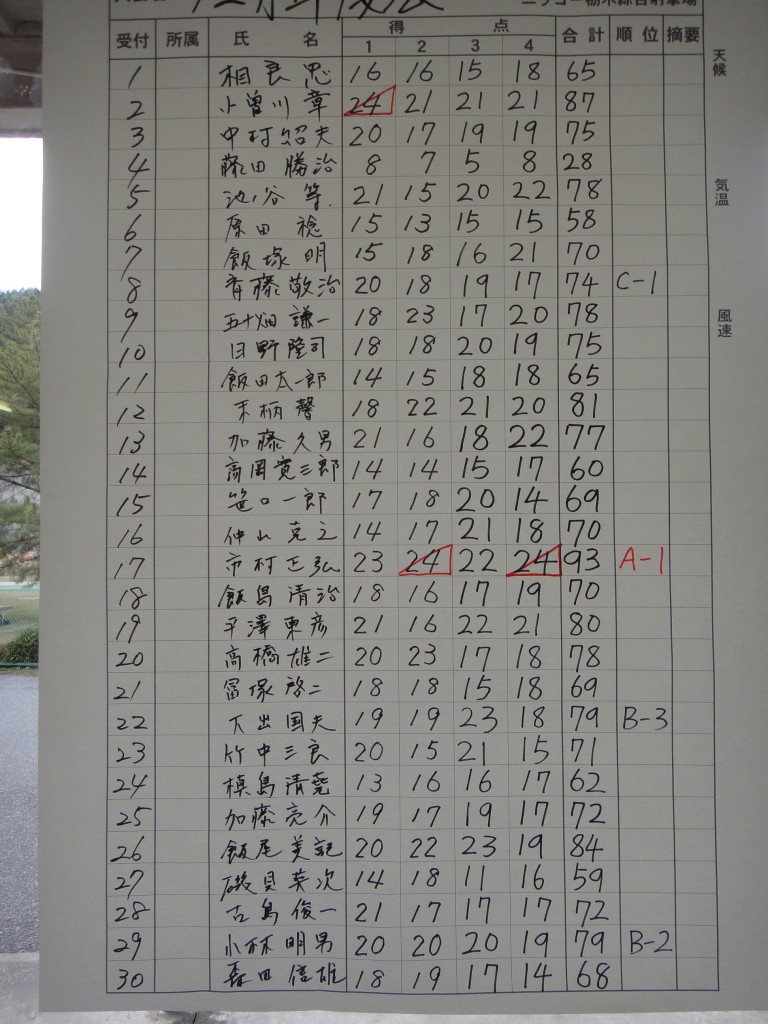 氏 名 得 点
受付 所属 1 2 3 4 合計 順位 摘要
1 相良忠 16 16 15 18 65
2 小曽川章 24 21 21 21 87
3 中村紹夫 20 17 19 19 75
4 藤田勝治 8 7 5 8 28
5 池ノ谷等 21 15 20 22 78
6 原田稔 15 13 15 15 58
7 飯塚明 15 18 16 21 70
8 斉藤敬治 20 18 19 17 74 C-1
9 五十畑謙一 18 23 17 20 78
10 日野隆司 18 18 20 19 75
11 飯田太一郎 14 15 18 18 65
12 末柄馨 18 22 21 20 81
13 加藤久男 21 16 18 22 77
14 高岡寛三郎 14 14 15 17 60
15 笹口一郎 17 18 20 14 69
16 仲山克之 14 17 21 18 70
17 市村正弘 23 24 22 24 93 A-1
18 飯島清治 18 16 17 19 70
19 平澤東彦 21 16 22 21 80
20 高橋雄二 20 23 17 18 78
21 冨塚啓二 18 18 15 18 69
22 大出国夫 19 19 23 18 79 B-3
23 竹中三良 20 15 21 15 71
24 槙島清堯 13 16 16 17 62
25 加藤亮介 19 17 19 17 72
26 飯尾美記 20 22 23 19 84
27 磯貝英次 14 18 11 16 59
28 古島俊一 21 17 17 17 72
29 小林明男 20 20 20 19 79 B-2
30 森田信雄 18 19 17 14 68
天候
気温
風速